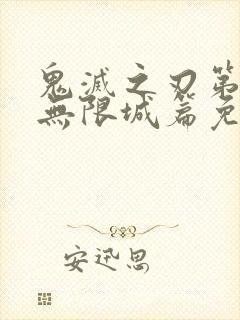 鬼滅之刃第
無限城篇免
安迅思